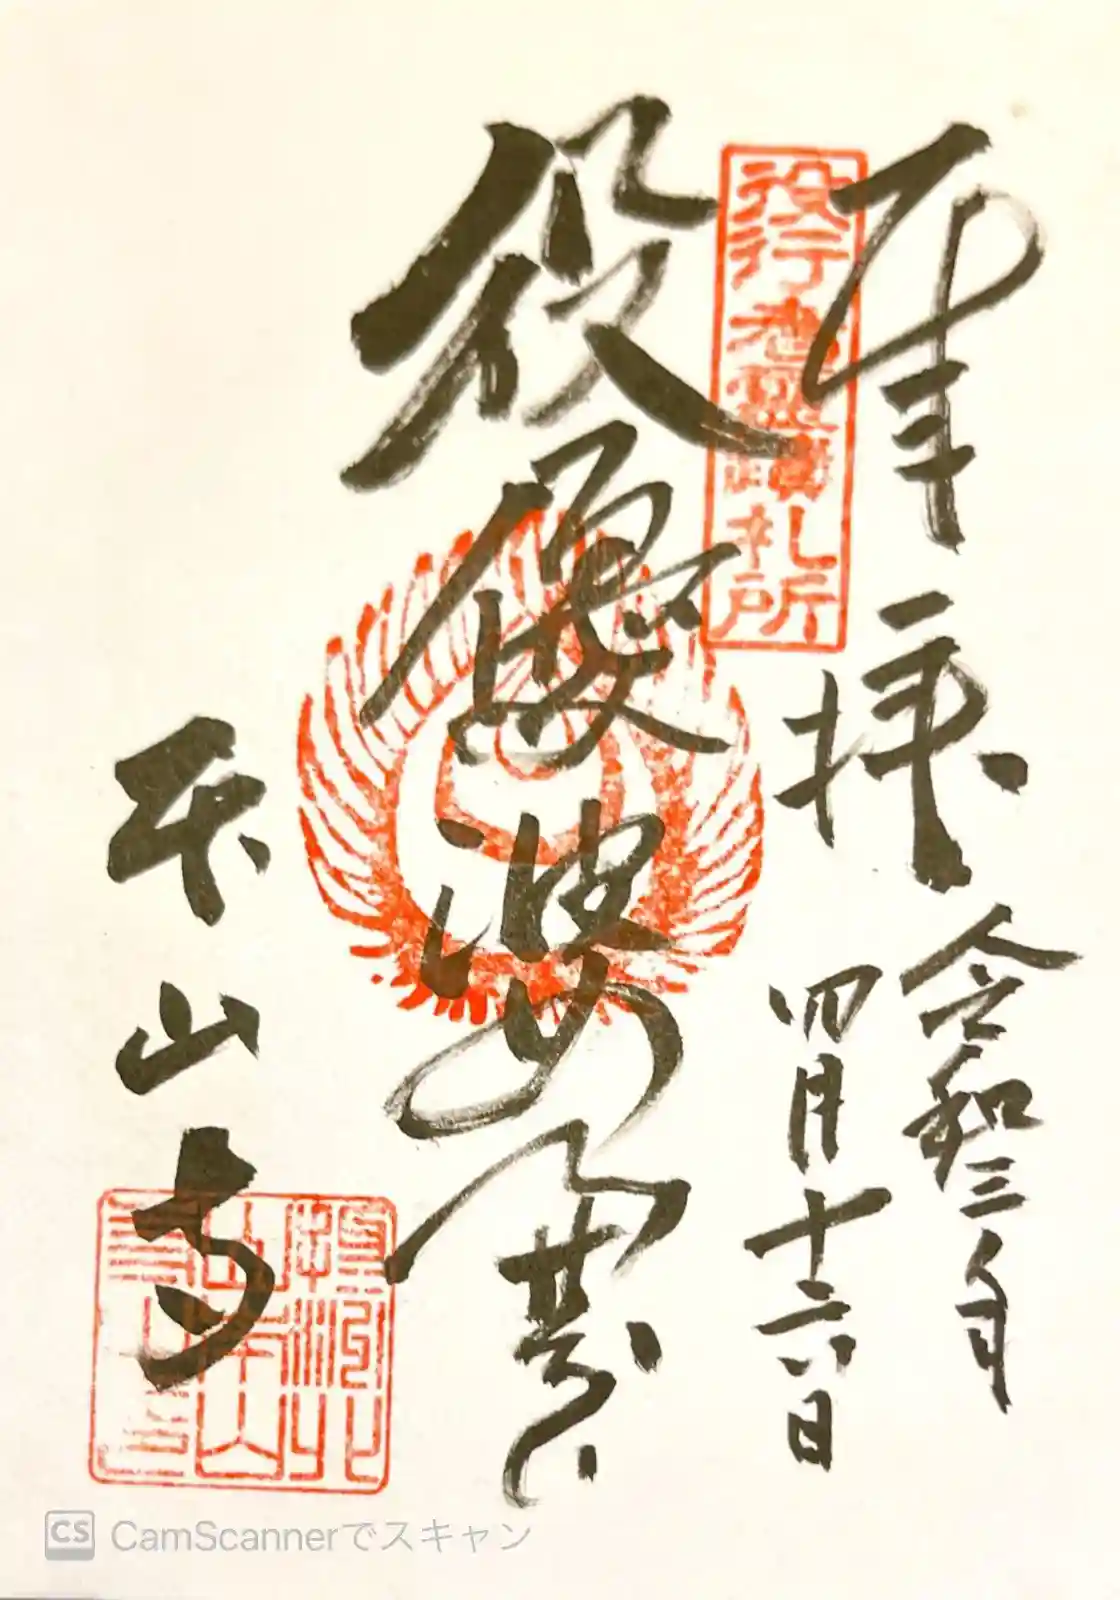 奉拝
令和三年
四月十六日
役行者霊蹟札所
役優婆塞
天山寺
CamScannerでスキャン